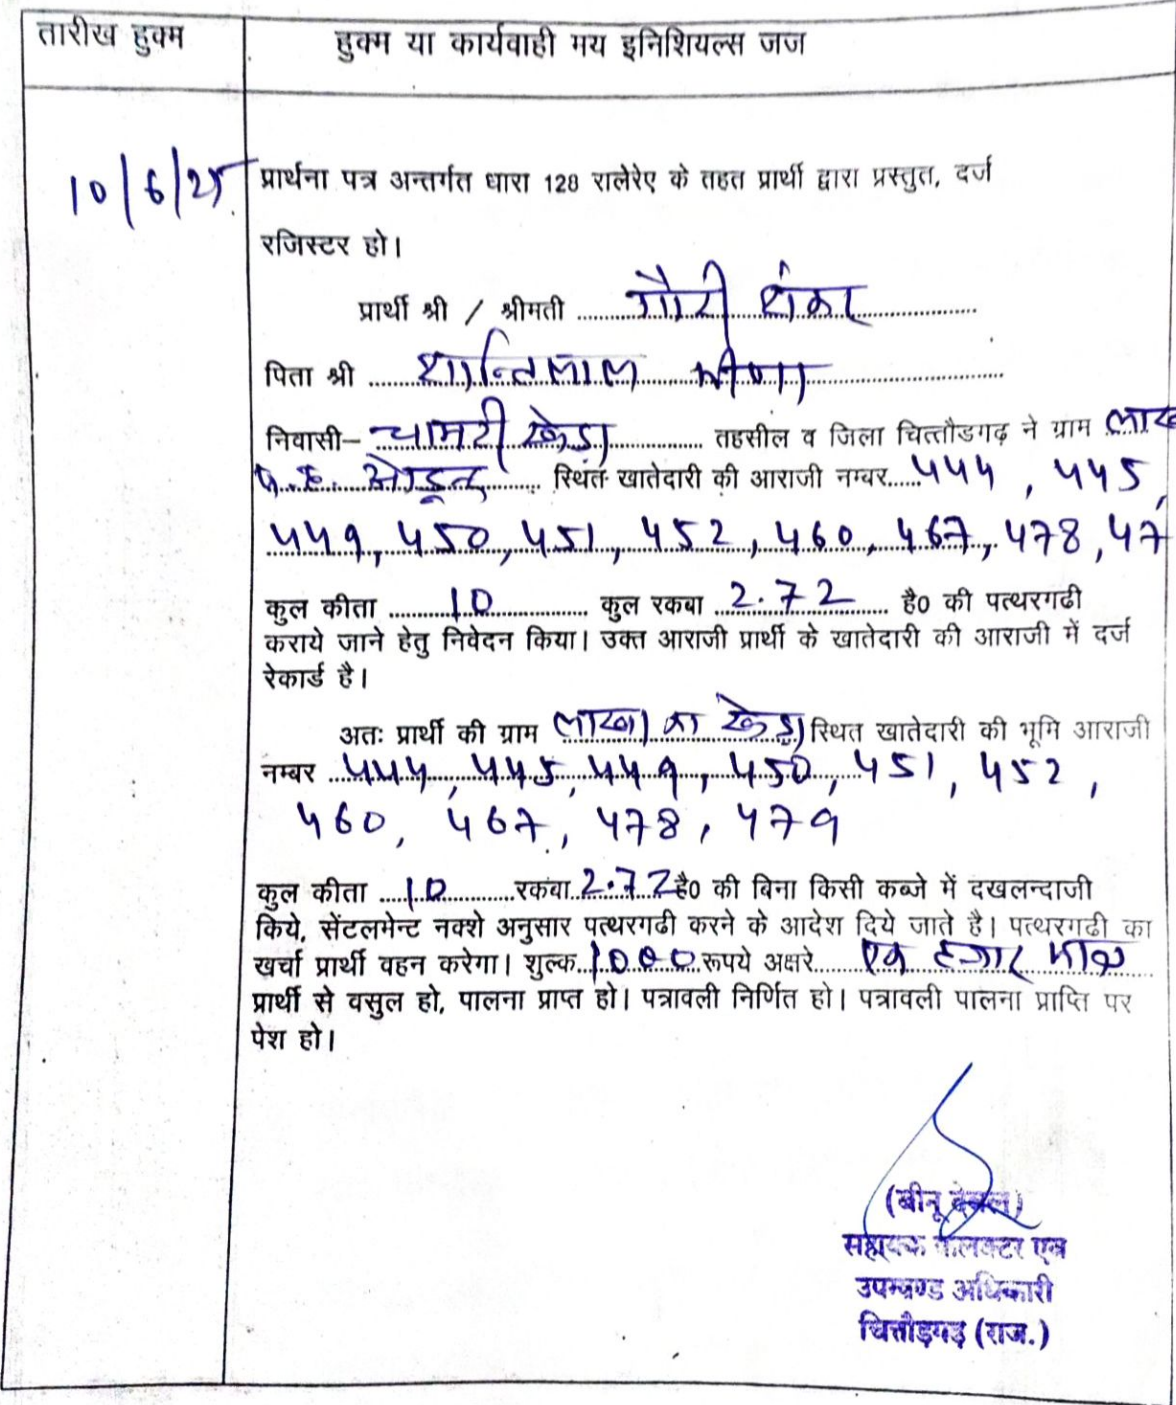 तारीख हुक्म
हुक्म या कार्यवाही मय इनिशियल्स जज
10/6/25
प्रार्थना पत्र अन्तर्गत धारा 128 रालेरेए के तहत प्रार्थी द्वारा प्रस्तुत, दर्ज
रजिस्टर हो।
प्रार्थी श्री / श्रीमती ......गौरी शंकर......
पिता श्री ......शान्तिलाल मीणा......
निवासी– चामटी खेडा ...... तहसील व जिला चित्तौडगढ़ ने ग्राम लाख
प.ह. ...... स्थित खातेदारी की आराजी नम्बर.....444, 445,
449, 450, 451, 452, 460, 467, 478, 47
कुल कीता ......10...... कुल रकबा ..2.72.. है0 की पत्थरगढी
कराये जाने हेतु निवेदन किया। उक्त आराजी प्रार्थी के खातेदारी की आराजी में दर्ज
रेकार्ड है।
अतः प्रार्थी की ग्राम लाखा का खेडा स्थित खातेदारी की भूमि आराजी
नम्बर ..444, 445, 449, 450, 451, 452,
460, 467, 478, 479
कुल कीता .....10......रकबा..2.72है0 की बिना किसी कब्जे में दखलन्दाजी
किये, सेंटलमेन्ट नक्शे अनुसार पत्थरगढी करने के आदेश दिये जाते है। पत्थरगढी का
खर्चा प्रार्थी वहन करेगा। शुल्क..1000..रूपये अक्षरे.....एक हजार मात्र
प्रार्थी से वसुल हो, पालना प्राप्त हो। पत्रावली निर्णित हो। पत्रावली पालना प्राप्ति पर
पेश हो।
(बीनू देवल)
सहायक कलक्टर एवं
उपखण्ड अधिकारी
चित्तौड़गढ़ (राज.)